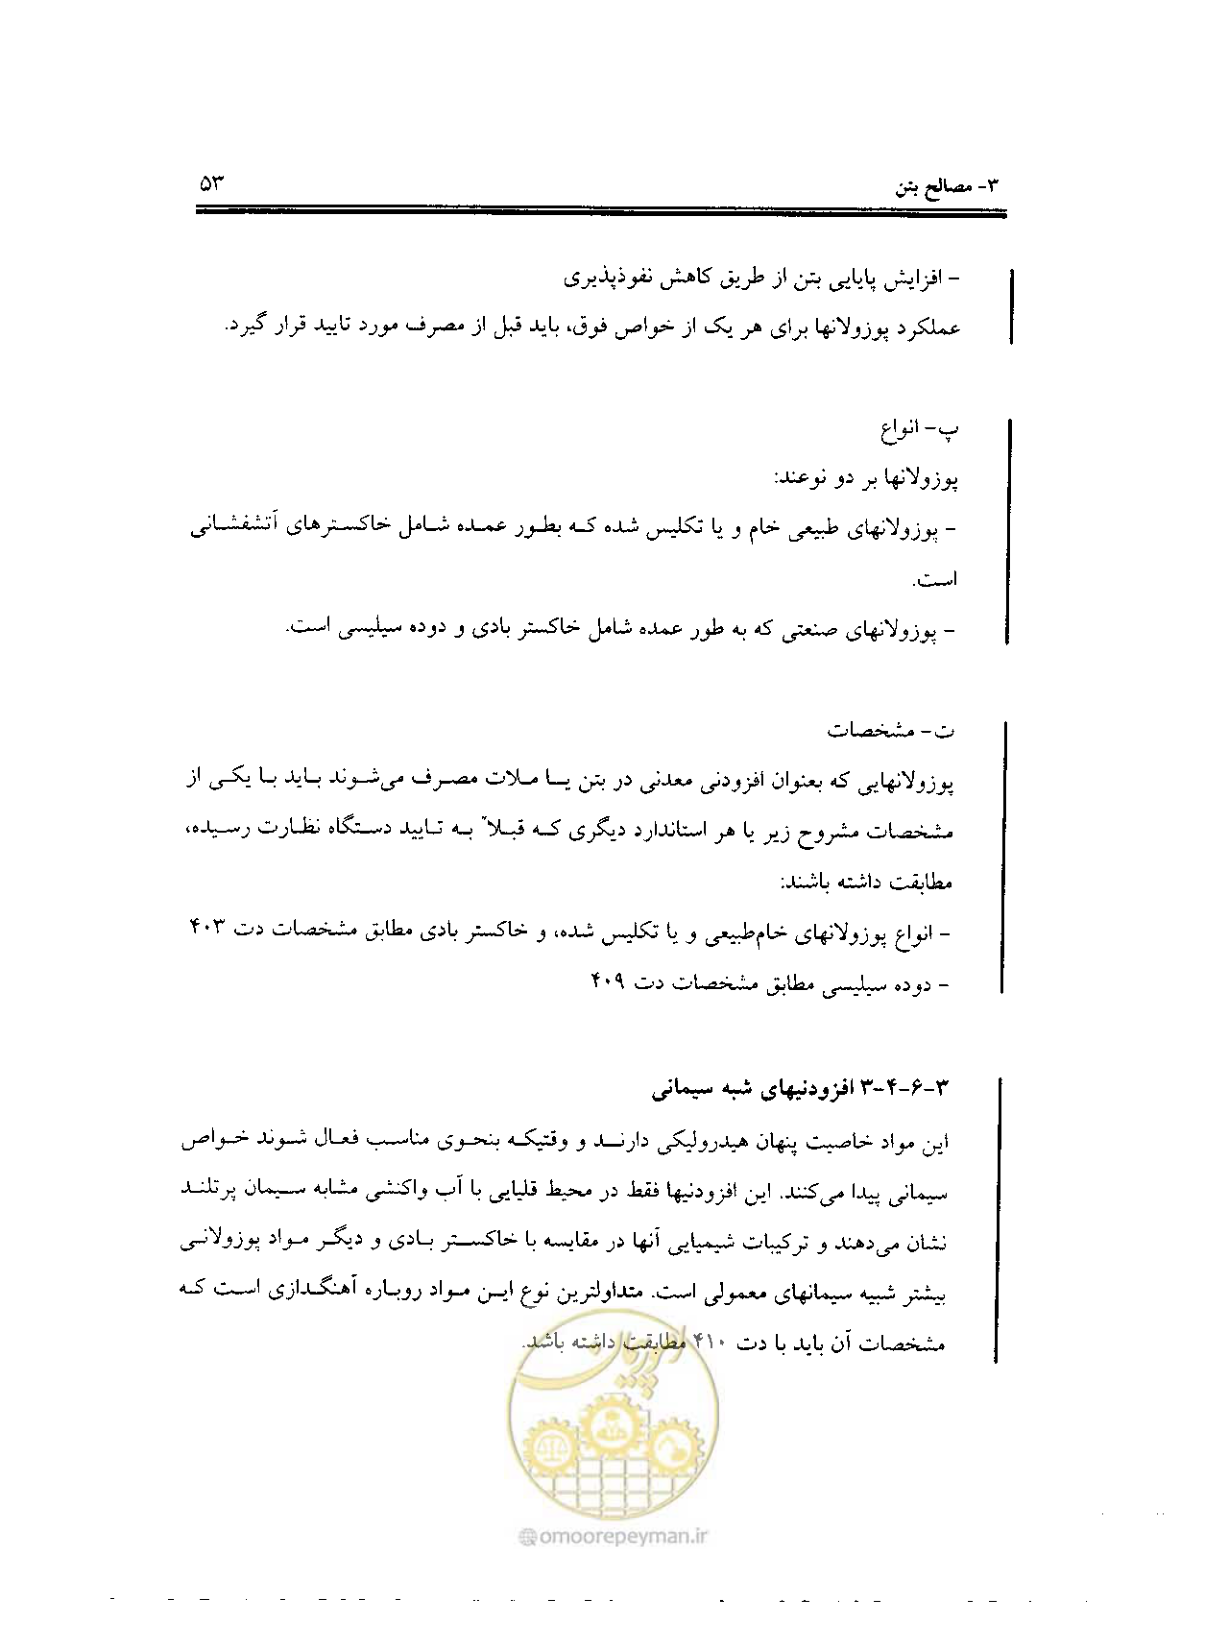 ۳- مصالح بتن ۵۳
- افزایش پایایی بتن از طریق کاهش نفوذپذیری
عملکرد پوزولانها برای هر یک از خواص فوق، باید قبل از مصرف مورد تایید قرار گیرد.
پ- انواع
پوزولانها بر دو نوعند:
- پوزولانهای طبیعی خام و یا تکلیس شده که بطور عمده شامل خاکسترهای آتشفشانی
است.
- پوزولانهای صنعتی که به طور عمده شامل خاکستر بادی و دوده سیلیسی است.
ت- مشخصات
پوزولانهایی که بعنوان افزودنی معدنی در بتن یا ملات مصرف می‌شوند باید با یکی از
مشخصات مشروح زیر یا هر استاندارد دیگری که قبلاً به تایید دستگاه نظارت رسیده،
مطابقت داشته باشند:
- انواع پوزولانهای خام‌طبیعی و یا تکلیس شده، و خاکستر بادی مطابق مشخصات دت ۴۰۳
- دوده سیلیسی مطابق مشخصات دت ۴۰۹
۳-۶-۴-۳ افزودنیهای شبه سیمانی
این مواد خاصیت پنهان هیدرولیکی دارند و وقتیکه بنحوی مناسب فعال شوند خواص
سیمانی پیدا می‌کنند. این افزودنیها فقط در محیط قلیایی با آب واکنشی مشابه سیمان پرتلند
نشان می‌دهند و ترکیبات شیمیایی آنها در مقایسه با خاکستر بادی و دیگر مواد پوزولانی
بیشتر شبیه سیمانهای معمولی است. متداولترین نوع این مواد روباره آهنگدازی است که
مشخصات آن باید با دت ۴۱۰ مطابقت داشته باشد.
امورپیمان
@omoorepeyman.ir